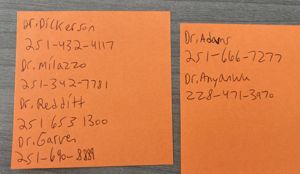 Dr. Dickerson
251-432-4117
Dr. Milazzo
251-342-7781
Dr. Redditt
251 653 1300
Dr. Garver
251-690-8889
Dr. Adams
251-666-7277
Dr. Anyanwu
228-471-3970